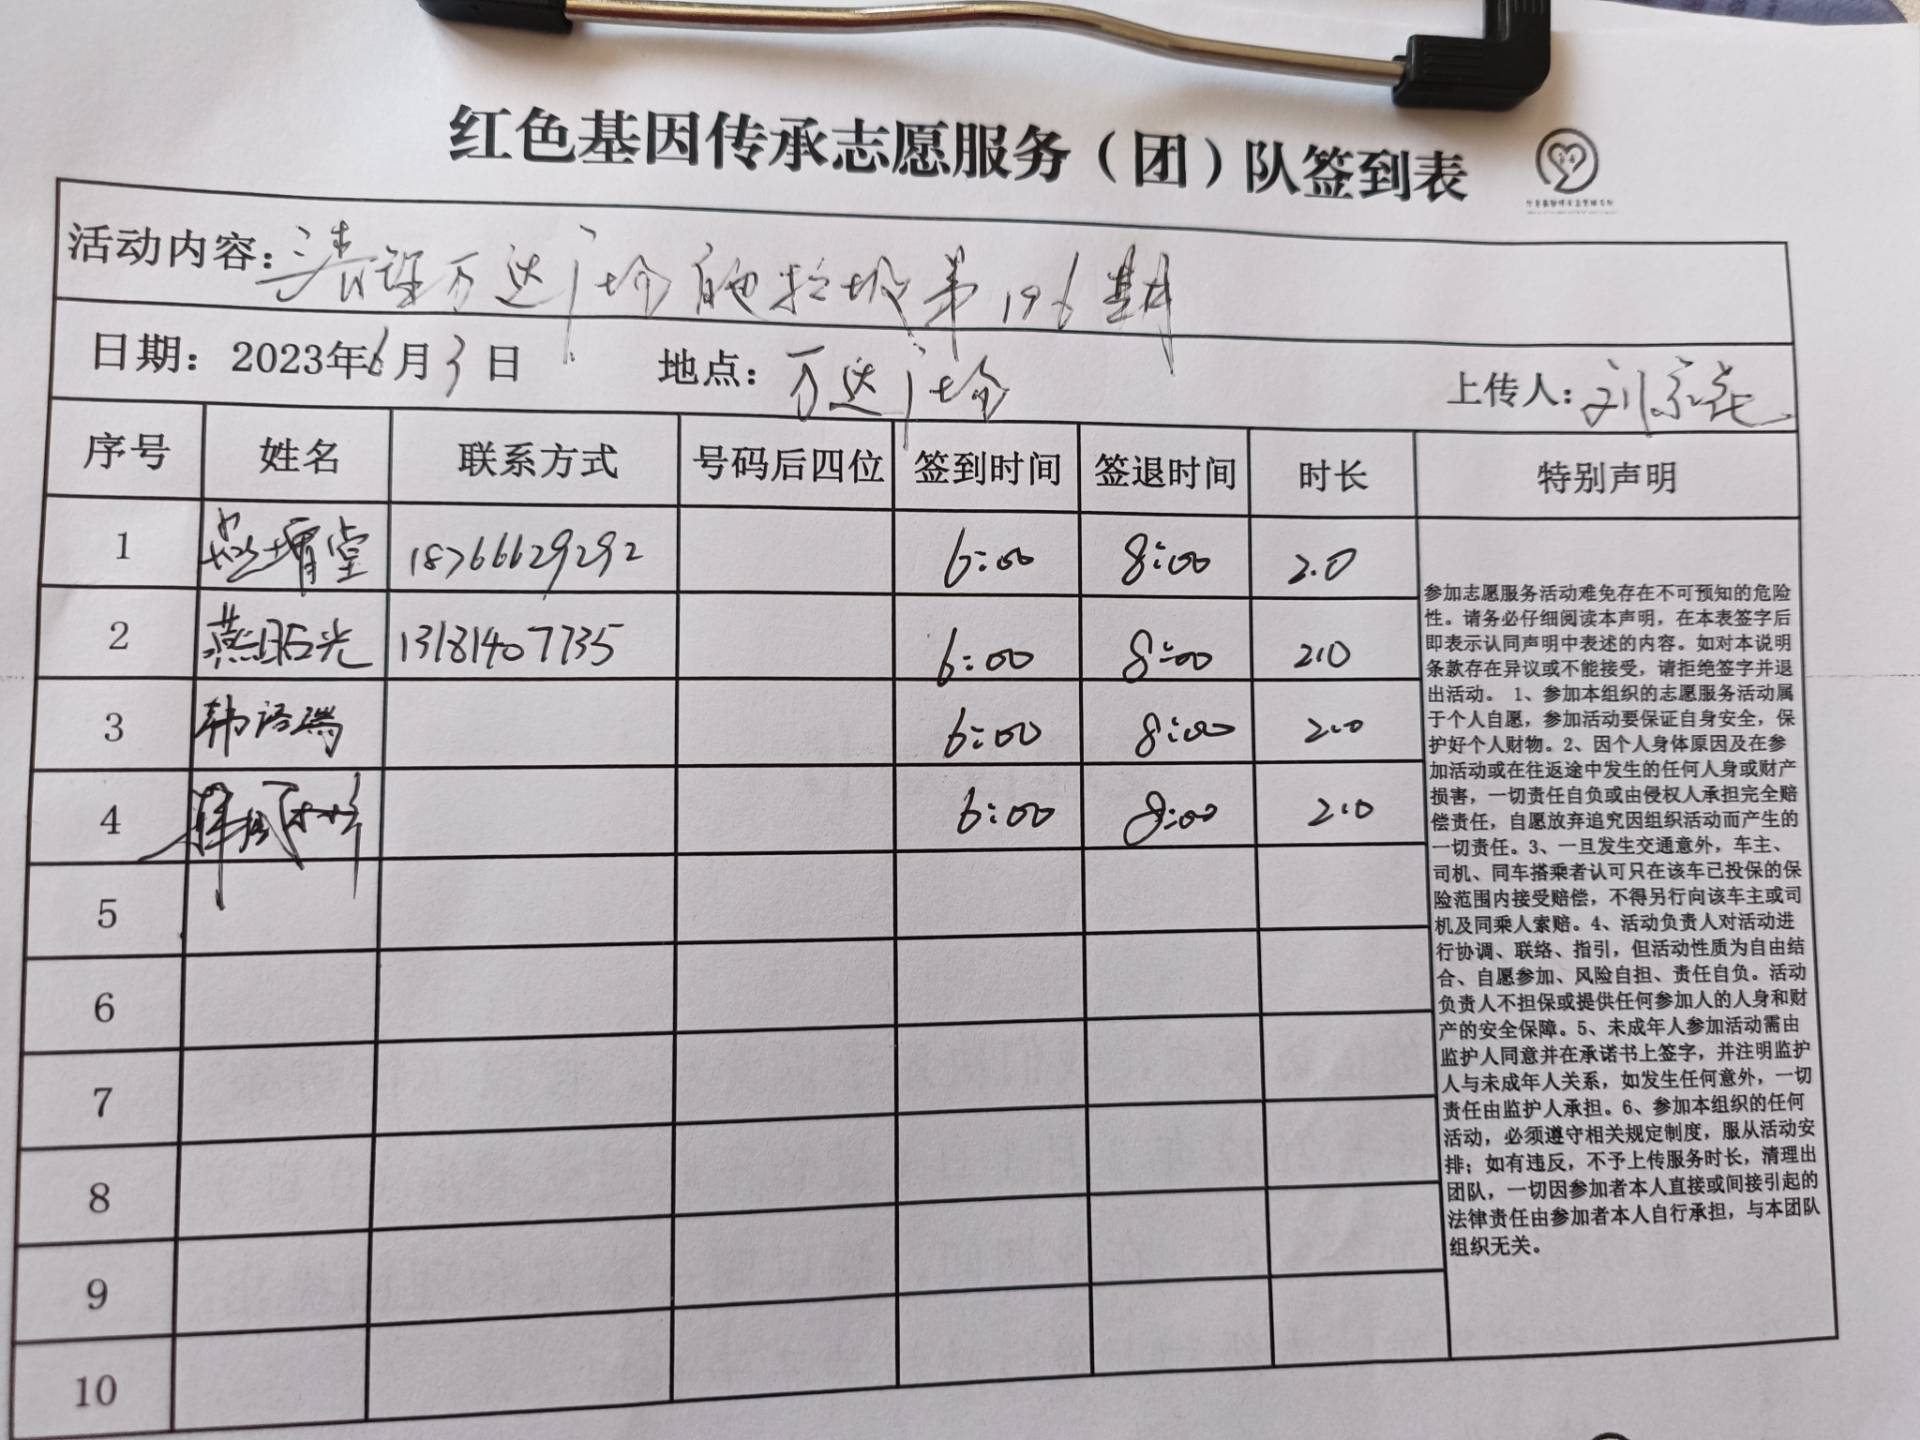 红色基因传承志愿服务（团）队签到表
活动内容：清理万达广场 垃圾第196期
日期：2023年6月3日 地点：万达广场 上传人：刘
序号 姓名 联系方式 号码后四位 签到时间 签退时间 时长 特别声明
1 堂 18766629292 6:00 8:00 2.0
2 燕昭光 13181407735 6:00 8:00 2.0
3 韩语瑞 6:00 8:00 2.0
4 6:00 8:00 2.0
5
6
7
8
9
10
参加志愿服务活动难免存在不可预知的危险
性。请务必仔细阅读本声明，在本表签字后
即表示认同声明中表述的内容。如对本说明
条款存在异议或不能接受，请拒绝签字并退
出活动。 1、参加本组织的志愿服务活动属
于个人自愿，参加活动要保证自身安全，保
护好个人财物。2、因个人身体原因及在参
加活动或在往返途中发生的任何人身或财产
损害，一切责任自负或由侵权人承担完全赔
偿责任，自愿放弃追究因组织活动而产生的
一切责任。3、一旦发生交通意外，车主、
司机、同车搭乘者认可只在该车已投保的保
险范围内接受赔偿，不得另行向该车主或司
机及同乘人索赔。4、活动负责人对活动进
行协调、联络、指引，但活动性质为自由结
合、自愿参加、风险自担、责任自负。活动
负责人不担保或提供任何参加人的人身和财
产的安全保障。5、未成年人参加活动需由
监护人同意并在承诺书上签字，并注明监护
人与未成年人关系，如发生任何意外，一切
责任由监护人承担。6、参加本组织的任何
活动，必须遵守相关规定制度，服从活动安
排；如有违反，不予上传服务时长，清理出
团队，一切因参加者本人直接或间接引起的
法律责任由参加者本人自行承担，与本团队
组织无关。